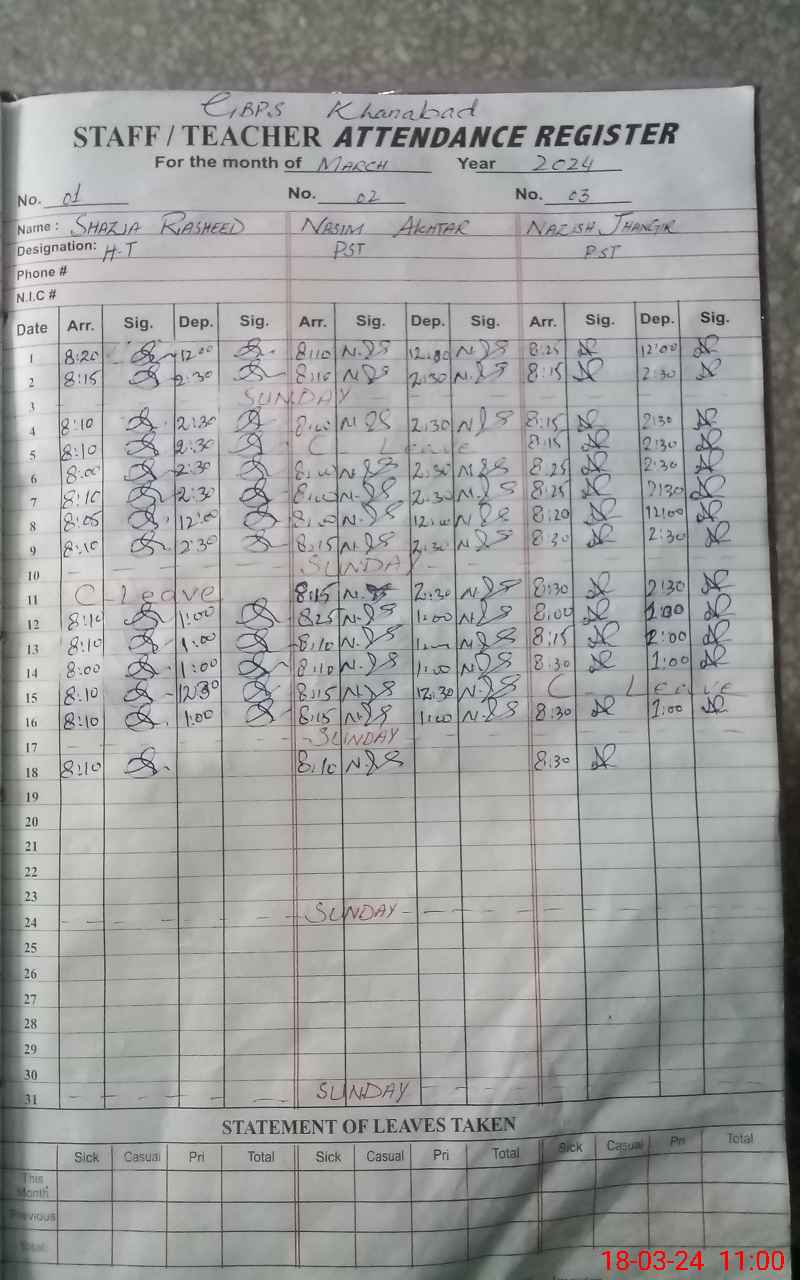 GBPS Khanabad
STAFF / TEACHER ATTENDANCE REGISTER
For the month of MARCH Year 2024
No. 01 No. 02 No. 03
Name : SHAZIA RASHEED NASIM AKHTAR NAZISH JHANGIR
Designation: H-T PST PST
Phone #
N.I.C #
Date Arr. Sig. Dep. Sig. Arr. Sig. Dep. Sig. Arr. Sig. Dep. Sig.
1 8:20 12:00 8:10 12:00 8:25 12:00
2 8:15 2:30 8:10 2:30 8:15 2:30
3 SUNDAY
4 8:10 2:30 8:00 2:30 8:15 2:30
5 8:10 2:30 C Leave 8:15 2:30
6 8:00 2:30 8:00 2:30 8:25 2:30
7 8:10 2:30 8:00 2:30 8:25 2:30
8 8:05 12:00 8:00 12:00 8:20 12:00
9 8:10 2:30 8:15 2:30 8:30 2:30
10 SUNDAY
11 C Leave 8:15 2:30 8:30 2:30
12 8:10 1:00 8:25 1:00 8:00 1:00
13 8:10 1:00 8:10 1:00 8:15 2:00
14 8:00 1:00 8:10 1:00 8:30 1:00
15 8:10 12:30 8:15 12:30 C Leave
16 8:10 1:00 8:15 1:00 8:30 1:00
17 SUNDAY
18 8:10 8:10 8:30
19
20
21
22
23
24 SUNDAY
25
26
27
28
29
30
31 SUNDAY
STATEMENT OF LEAVES TAKEN
Sick Casual Pri Total Sick Casual Pri Total Sick Casual Pri Total
This
Month
Previous
Total
18-03-24 11:00